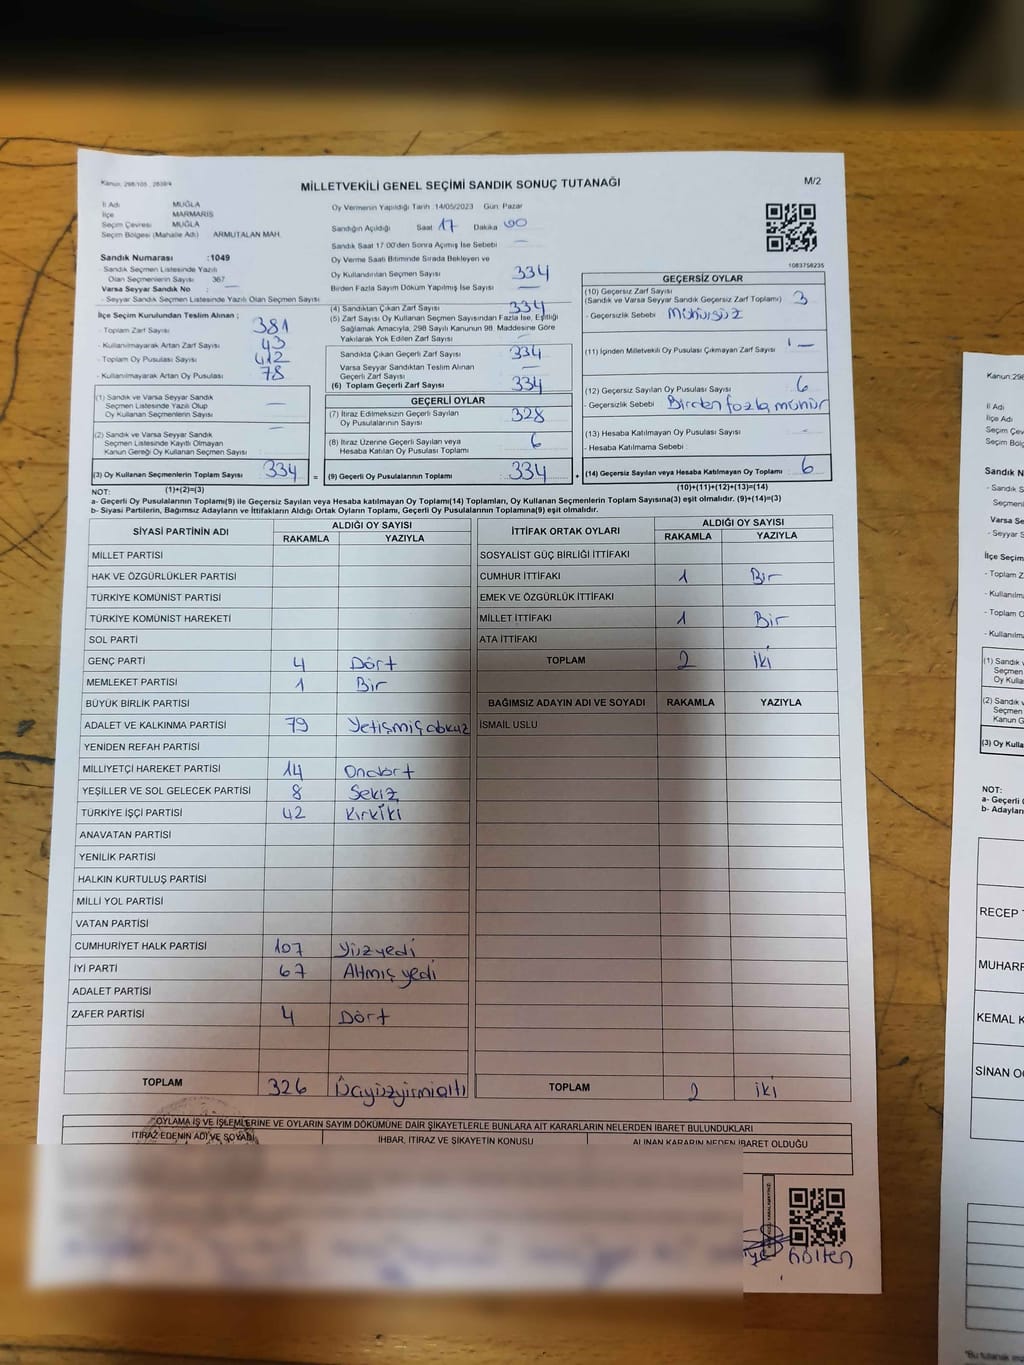 Kanun: 298/105, 2839/4
MİLLETVEKİLİ GENEL SEÇİMİ SANDIK SONUÇ TUTANAĞI
M/2
İl Adı MUĞLA
İlçe MARMARİS
Seçim Çevresi MUĞLA
Seçim Bölgesi (Mahalle Adı) ARMUTALAN MAH.
Sandık Numarası :1049
- Sandık Seçmen Listesinde Yazılı
Olan Seçmenlerin Sayısı 367
Varsa Seyyar Sandık No : —
- Seyyar Sandık Seçmen Listesinde Yazılı Olan Seçmen Sayısı
İlçe Seçim Kurulundan Teslim Alınan ;
- Toplam Zarf Sayısı 381
- Kullanılmayarak Artan Zarf Sayısı 43
- Toplam Oy Pusulası Sayısı 412
- Kullanılmayarak Artan Oy Pusulası 78
(1) Sandık ve Varsa Seyyar Sandık
Seçmen Listesinde Yazılı Olup
Oy Kullanan Seçmenlerin Sayısı —
(2) Sandık ve Varsa Seyyar Sandık
Seçmen Listesinde Kayıtlı Olmayan
Kanun Gereği Oy Kullanan Seçmen Sayısı —
(3) Oy Kullanan Seçmenlerin Toplam Sayısı 334
Oy Vermenin Yapıldığı Tarih :14/05/2023 Gün: Pazar
Sandığın Açıldığı Saat 17 Dakika 00
Sandık Saat 17:00'den Sonra Açımış İse Sebebi —
Oy Verme Saati Bitiminde Sırada Bekleyen ve
Oy Kullandırılan Seçmen Sayısı 334
Birden Fazla Sayım Döküm Yapılmış İse Sayısı —
(4) Sandıktan Çıkan Zarf Sayısı 334
(5) Zarf Sayısı Oy Kullanan Seçmen Sayısından Fazla İse, Eşitliği
Sağlamak Amacıyla, 298 Sayılı Kanunun 98. Maddesine Göre
Yakılarak Yok Edilen Zarf Sayısı
Sandıkta Çıkan Geçerli Zarf Sayısı 334
Varsa Seyyar Sandıktan Teslim Alınan
Geçerli Zarf Sayısı —
(6) Toplam Geçerli Zarf Sayısı 334
GEÇERLİ OYLAR
(7) İtiraz Edilmeksizin Geçerli Sayılan
Oy Pusulalarının Sayısı 328
(8) İtiraz Üzerine Geçerli Sayılan veya
Hesaba Katılan Oy Pusulası Toplamı 6
= (9) Geçerli Oy Pusulalarının Toplamı : 334
1083758235
GEÇERSİZ OYLAR
(10) Geçersiz Zarf Sayısı
(Sandık ve Varsa Seyyar Sandık Geçersiz Zarf Toplamı) 3
- Geçersizlik Sebebi Mühürsüz
(11) İçinden Milletvekili Oy Pusulası Çıkmayan Zarf Sayısı —
(12) Geçersiz Sayılan Oy Pusulası Sayısı 6
- Geçersizlik Sebebi Birden fazla mühür
(13) Hesaba Katılmayan Oy Pusulası Sayısı -
- Hesaba Katılmama Sebebi :
+ (14) Geçersiz Sayılan veya Hesaba Katılmayan Oy Toplamı 6
NOT: (1)+(2)=(3)
(10)+(11)+(12)+(13)=(14)
a- Geçerli Oy Pusulalarının Toplamı(9) ile Geçersiz Sayılan veya Hesaba katılmayan Oy Toplamı(14) Toplamları, Oy Kullanan Seçmenlerin Toplam Sayısına(3) eşit olmalıdır. (9)+(14)=(3)
b- Siyasi Partilerin, Bağımsız Adayların ve İttifakların Aldığı Ortak Oyların Toplamı, Geçerli Oy Pusulalarının Toplamına(9) eşit olmalıdır.
SİYASİ PARTİNİN ADI
ALDIĞI OY SAYISI
RAKAMLA YAZIYLA
MİLLET PARTİSİ
HAK VE ÖZGÜRLÜKLER PARTİSİ
TÜRKİYE KOMÜNİST PARTİSİ
TÜRKİYE KOMÜNİST HAREKETİ
SOL PARTİ
GENÇ PARTİ 4 Dört
MEMLEKET PARTİSİ 1 Bir
BÜYÜK BİRLİK PARTİSİ
ADALET VE KALKINMA PARTİSİ 79 Yetişmişdokuz
YENİDEN REFAH PARTİSİ
MİLLİYETÇİ HAREKET PARTİSİ 14 Ondört
YEŞİLLER VE SOL GELECEK PARTİSİ 8 Sekiz
TÜRKİYE İŞÇİ PARTİSİ 42 Kırkiki
ANAVATAN PARTİSİ
YENİLİK PARTİSİ
HALKIN KURTULUŞ PARTİSİ
MİLLİ YOL PARTİSİ
VATAN PARTİSİ
CUMHURİYET HALK PARTİSİ 107 Yüzyedi
İYİ PARTİ 67 Altmış yedi
ADALET PARTİSİ
ZAFER PARTİSİ 4 Dört
TOPLAM 326 Üçyüzyirmialtı
İTTİFAK ORTAK OYLARI
ALDIĞI OY SAYISI
RAKAMLA YAZIYLA
SOSYALİST GÜÇ BİRLİĞİ İTTİFAKI
CUMHUR İTTİFAKI 1 Bir
EMEK VE ÖZGÜRLÜK İTTİFAKI
MİLLET İTTİFAKI 1 Bir
ATA İTTİFAKI
TOPLAM 2 İki
BAĞIMSIZ ADAYIN ADI VE SOYADI RAKAMLA YAZIYLA
İSMAİL USLU
TOPLAM 2 İki
OYLAMA İŞ VE İŞLEMLERİNE VE OYLARIN SAYIM DÖKÜMÜNE DAİR ŞİKAYETLERLE BUNLARA AİT KARARLARIN NELERDEN İBARET BULUNDUKLARI
İTİRAZ EDENİN ADI VE SOYADI İHBAR, İTİRAZ VE ŞİKAYETİN KONUSU ALINAN KARARIN NEDEN İBARET OLDUĞU
Kanun:298
İl Adı
İlçe
Seçim Çev
Seçim Bölg
Sandık N
- Sandık S
Seçmenl
Varsa Se
- Seyyar S
İlçe Seçim
- Toplam Z
- Kullanılma
- Toplam O
- Kullanılma
(1) Sandık v
Seçmen
Oy Kulla
(2) Sandık v
Seçmen
Kanun G
(3) Oy Kulla
NOT:
a- Geçerli (
b- Adayları
RECEP T
MUHARR
KEMAL K
SİNAN O